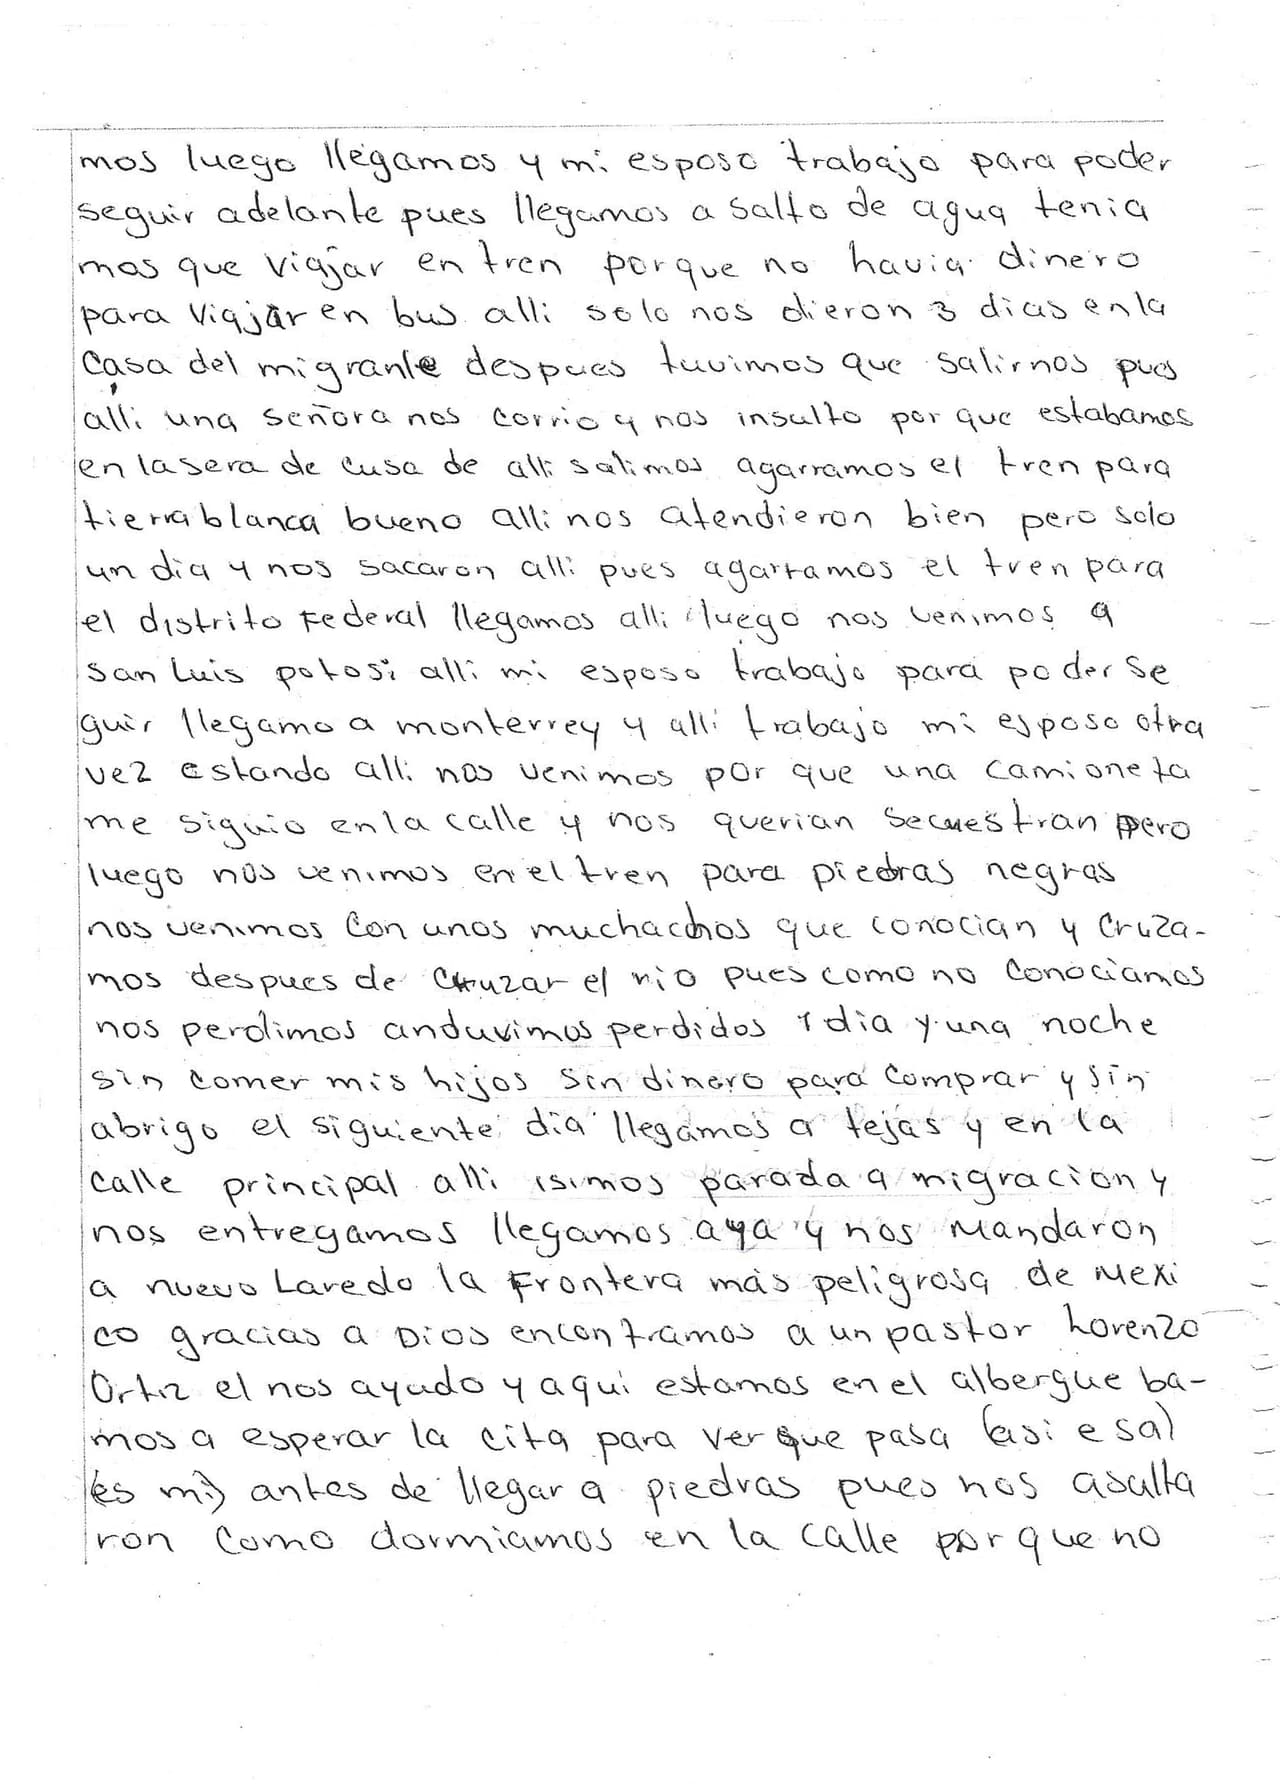 mos luego llegamos y mi esposo trabajo para poder
seguir adelante pues llegamos a salto de agua tenia
mos que viajar en tren porque no havia dinero
para viajar en bus alli solo nos dieron 3 dias en la
casa del migrante despues tuvimos que salirnos pues
alli una señora nos corrio y nos insulto por que estabamos
en la sera de cusa de alli salimos agarramos el tren para
tierra blanca bueno alli nos atendieron bien pero solo
un dia y nos sacaron alli pues agarramos el tren para
el distrito Federal llegamos alli luego nos venimos a
san Luis potosi alli mi esposo trabajo para poder se
guir llegamo a monterrey y alli trabajo mi esposo otra
vez estando alli nos venimos por que una camioneta
me siguio en la calle y nos querian secuestran pero
luego nos venimos en el tren para piedras negras
nos venimos con unos muchachos que conocian y cruza-
mos despues de cruzar el rio pues como no conociamos
nos perdimos anduvimos perdidos 1 dia y una noche
sin comer mis hijos sin dinero para comprar y sin
abrigo el siguiente dia llegamos a tejas y en la
calle principal alli isimos parada a migracion y
nos entregamos llegamos aya y nos mandaron
a nuevo Laredo la Frontera mas peligrosa de Mexi
co gracias a Dios encontramos a un pastor Lorenzo
Ortiz el nos ayudo y aqui estamos en el albergue ba-
mos a esperar la cita para ver que pasa (asi esa)
(es mi) antes de llegar a piedras pues nos asalta
ron como dormiamos en la calle por que no